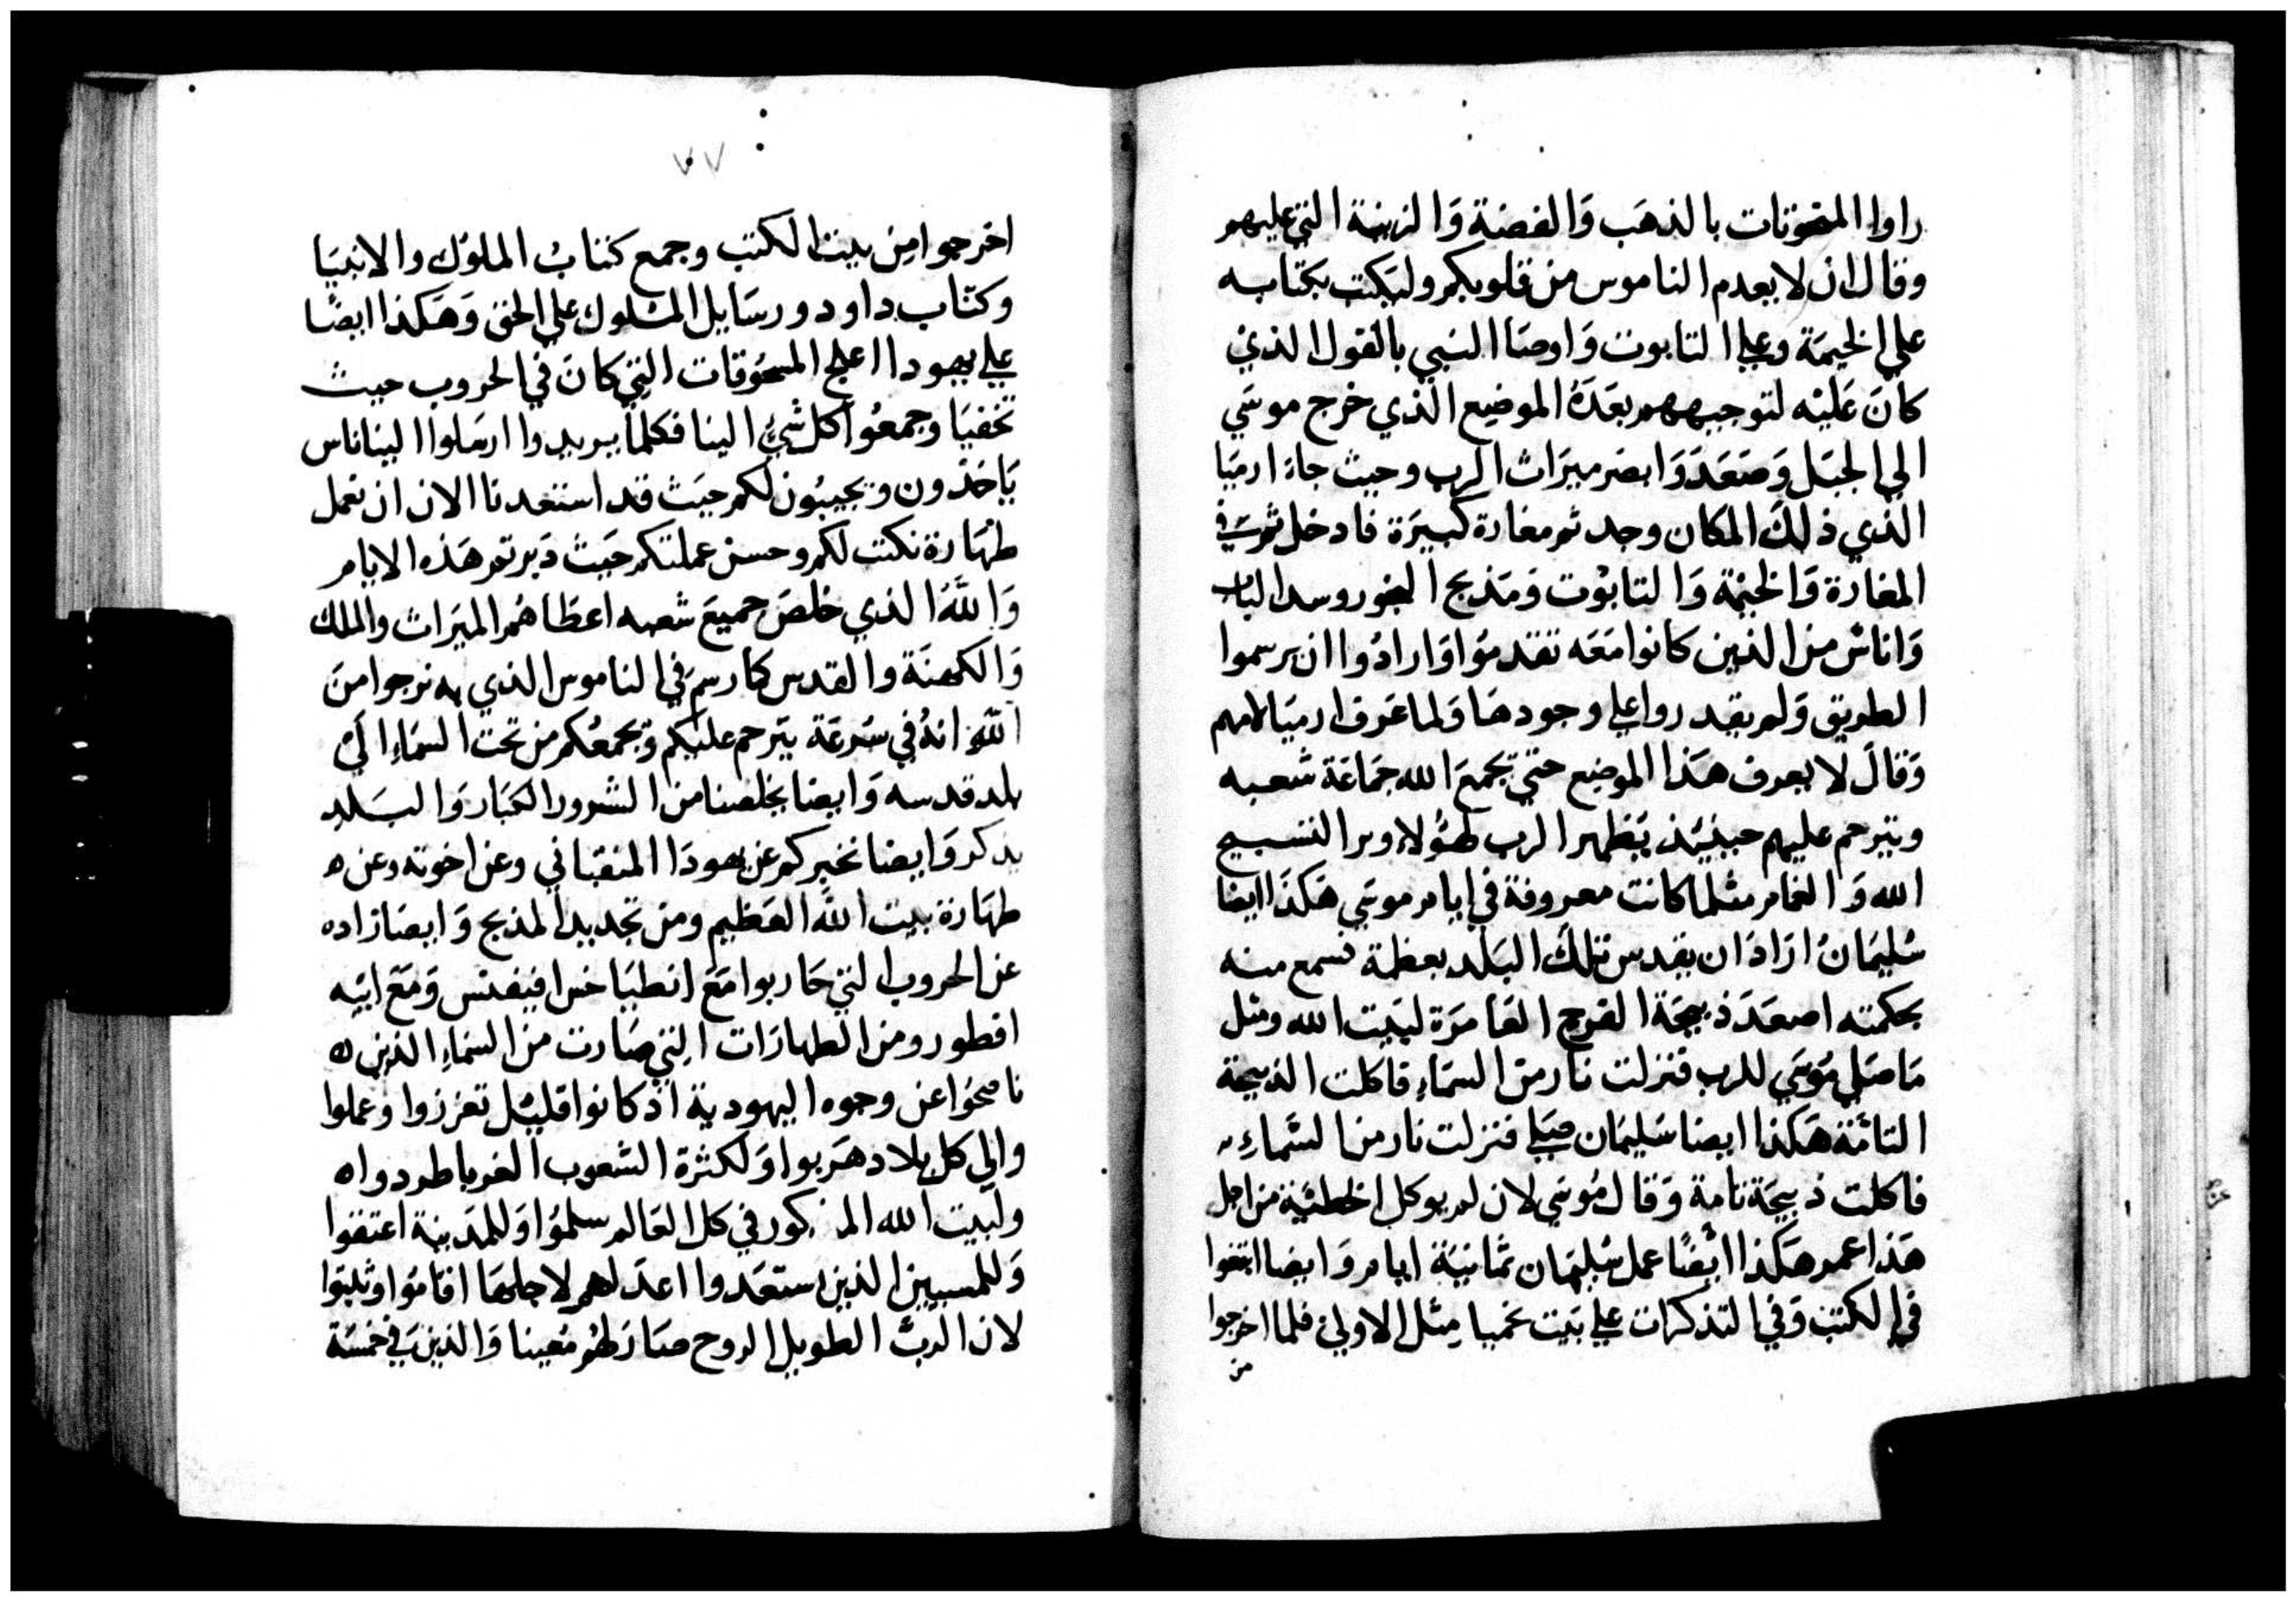 راوا المنحوتات بالذهَب وَالفضة وَالزينة التي عليهم
وقال ان لا يعدم الناموس من قلوبكم وليَكتب بكتابه
علي الخيمَة وعلي التابوت وَاوصَا النبي بالقول الذي
كانَ عَليْه لتوجيههم بعَدَهُ الموضِع الذي خرج موسَي
الي الجبَل وَصَعَدَ وَابصَر ميرَاث الرب وحيث جاءَ ارميَا
الذي ذلكَ المكان وجد ثم مغارة كبيَرة فادخل ثم في
المغارَة وَالخيْمة وَالتابوْت وَمَذبح البخور وسد الباب
وَاناسٌ من الذين كانوا مَعَه تقدموُا وَارادُوا ان يرسموا
الطريق وَلم يقدروا علي وجودهَا وَلما عَرف ارميَا لامهم
وَقالَ لا يعرف هَذا الموضِع حتي يجمعَ الله جمَاعَة شعبه
ويترحم عليهم حينيَئذ يَظهر الرب لهَوُلاء ويرا التسبيح
الله وَالغامر مثلما كانت معروفة في ايام موسَي هَكذَا ايضا
سُليمَانُ ارَادَ ان يقدس تلكَ البَلد بعظمة تسمع منه
بحكمته اصعَدَ ذبيحَة الفرح العَامرَة لبَيت الله ومثل
مَا صَلي مُوسَي للرب فنزلت نار من السمَاءِ فاكلت الذبيحة
التامَّة هَكذا ايضا سُليمَان صَلي فنزلت نار من السَّماءِ
فاكلت ذبيحَة تامة وَقال مُوسَي لان لم يوكل الخطيَة من اجل
هَذا عمر هَكذا ايْضًا عمل سُليمَان ثمانيَة ايام وَايضا ابتغوا
في الكتب وَفي التذكرات علي بَيت نحميا مِثل الاولي فلما اخرجوا
من
٧٧
اخرجوا مِن بيت الكتب وجمع كتابُ الملوُك والانبيَا
وكتَاب داود ورسَايل الملوك علي الحق وَهَكذا ايضًا
علي يهودا اعلي المسحُوقات التي كانَ في الحروب حيث
تخفيَا وجمعُوا كل شيُ الينا فكلما يريدوا ارسَلوا الينا ناس
يَاخذون ويجيبُون لكم حيَث قد استعدنا الان ان نعمل
طهَارة نكتب لكم وحسن عملتكم حيَث دَبرتم هَذه الايام
وَاللهُ الذي خلصَ جميعَ شعبه اعطَاهُم الميَراث والملك
وَالكهنَة والقدس كما رسم في الناموس الذي به نرجوا منَ
اللهِ انهُ في سُرعَة يتَرحم عليَكم وَيجمعُكم من تحت السمَاءِ الَي
بلد قدسه وَايضا يخلصنا من الشرور الكبَار وَالبَلد
يذكر وَايضا نخبركم عن يهودَا المنقبَاني وعن اخوته وعن
طهَارة بيت اللهِ العَظيم ومن تجديد المذبح وَايضَا زاده
عن الحروب التي حَاربوا مَعَ انطيَاخس افيفنس وَمَعَ ابيْه
افطور ومن الطهارَات التي صَارت من السمَاءِ الذين
ناصحوُا عن وجوه اليهودية اذ كانوا قليُل تعززوا وَعملوا
والي كل بلاد هَربوا وَلكثرة الشعوب الغربا طردوا
ولبيت الله المذكور في كل العَالم سلموُا وَللمدَينة اعتقوا
وَللمسبيين الذين استعَدوا اعدَ لهم لاجلهَا اقامُوا وثبتوا
لان الربَّ الطويل الروح صَارَ لهُم مُعينا وَالذين في خمسَة